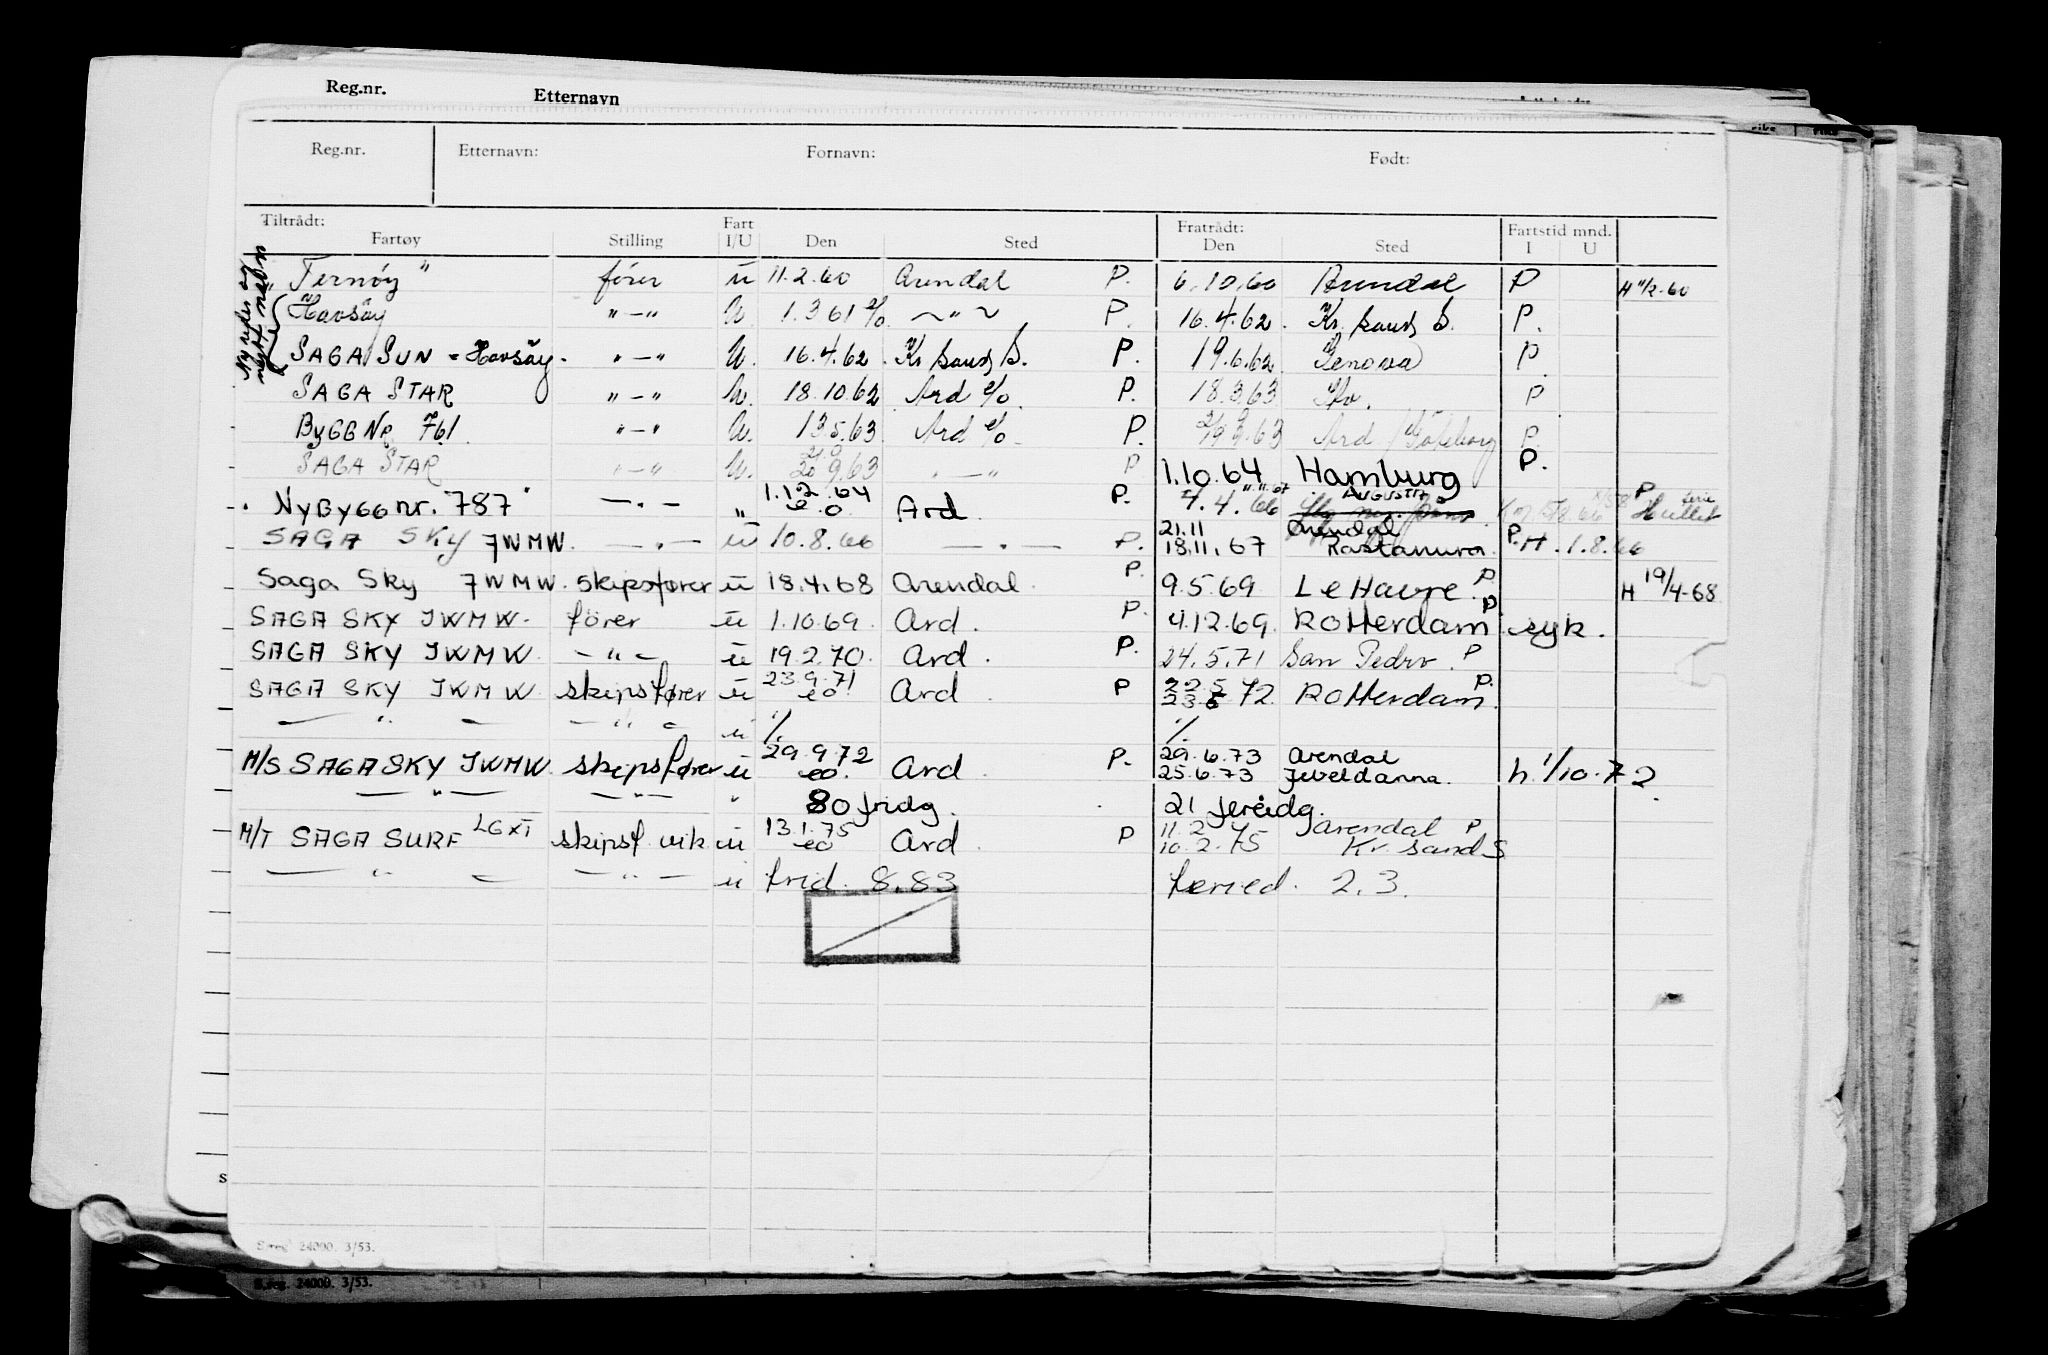 Reg.nr. Etternavn
Reg.nr. Etternavn: Fornavn: Født:
Tiltrådt: Fratrådt: Fartstid mnd.
Fartøy Stilling Fart I/U Den Sted Den Sted I U
Ny reder og nytt navn
"Ternøy" fører u 11.2.60 Arendal P. 6.10.60 Arendal P H 11/2-60
Havsøy "-" U. 1.3 61 % ~"~ P. 16.4.62. Kr. sand S. P.
SAGA SUN = Havsøy. "-" U. 16.4.62. Kr sand S. P. 19.6.62. Genova P
SAGA STAR "-" U. 18.10.62 Ard e/o P. 18.3.63 P
BYGG No 761. "-" U. 13.5.63 Ard e/o. P. 9.63 Ard / Göteborg P.
SAGA STAR "-" U. 9.63 "-" P 1.10.64 Hamburg P.
"Nybygg nr. 787" -"- " 1.12.64 eo Ard. P. 4.4.66 11.11.67 AUGUSTA
SAGA SKY JWMW. -"- u 10.8.66 -"- P. 21.11 18.11.67 Arendal Rastanura P. H. 1.8.66
Saga Sky JWMW. skipsfører u 18.4.68 Arendal. P. 9.5.69 Le Havre. P H 19/4-68
SAGA SKY JWMW. fører u 1.10.69. Ard. P. 4.12.69. Rotterdam P. syk.
SAGA SKY JWMW. -"- u 19.2.70. Ard. P. 24.5.71 San Pedro. P
SAGA SKY JWMW. skipsfører u 23.9.71 eo Ard. P 22.5 23.5 72. Rotterdam P.
-"- -"- u %. %.
M/S SAGA SKY JWMW. skipsfører u 29.9.72 eo. Ard. P. 29.6.73 25.6.73 Arendal Jebeldanna. h. 1/10.72
-"- -"- " 80 fridg. 21 feriedg.
M/T SAGA SURF LGXT skipsf. vik. u 13.1.75 eo Ard. P 11.2 10.2.75 Arendal P Kr. sand S
-"- -"- u frid. 8.83 feried. 2.3.
24000. 3/53.
B.reg. 24000. 3/53.